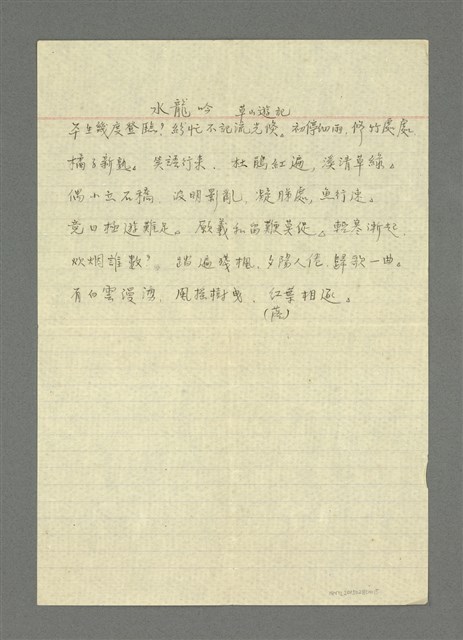 水龍吟 草山遊記
年年幾度登臨？紛忙不記流光換。初停細雨，修竹處處，
橘子新熟。笑語行來，杜鵑紅遍，溪清草綠。
偶小立石橋，波明影亂，凝眸處，魚行速。
竟日極遊難足。 私 難莫從。輕寒漸起，
炊烟誰數？踏遍殘楓，夕陽人倦，歸歌一曲。
有白雲漫灣，風搖樹曳，紅葉相逐。